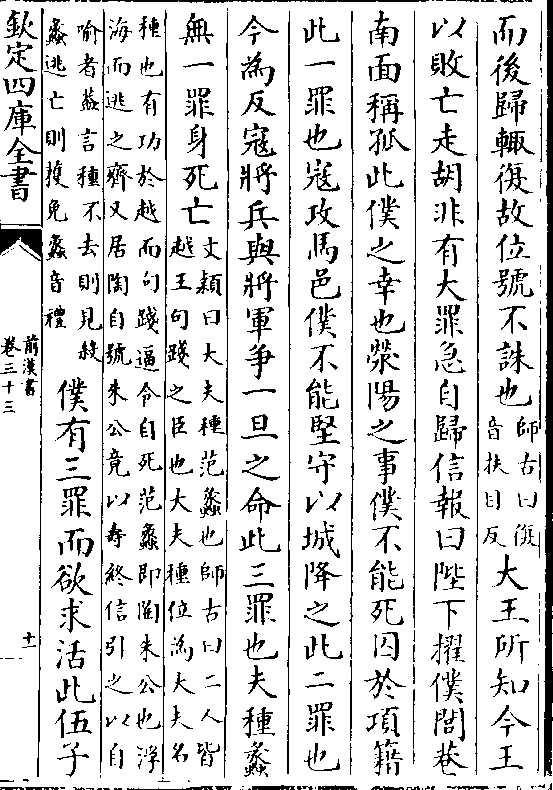 而後歸輙復故位號不誅也師古曰復
音扶目反大王所知今王
以敗亡走胡非有大罪急自歸信報曰陛下擢僕閭巷
南面稱孤此僕之幸也滎陽之事僕不能死囚於項籍
此一罪也寇攻馬邑僕不能堅守以城降之此二罪也
今為反寇將兵與將軍争一旦之命此三罪也夫種蠡
無一罪身死亡文穎曰大夫種范蠡也師古曰二人皆
越王句踐之臣也大夫種位為大夫名
種也有功於越而句踐逼令自死范蠡即陶朱公也浮
海而逃之齊又居陶自號朱公竟以夀終信引之以自
喻者葢言種不去則見殺
蠡逃亡則獲免蠡音禮僕有三罪而欲求活此伍子
欽定四庫全書
前漢書
卷三十三
十一